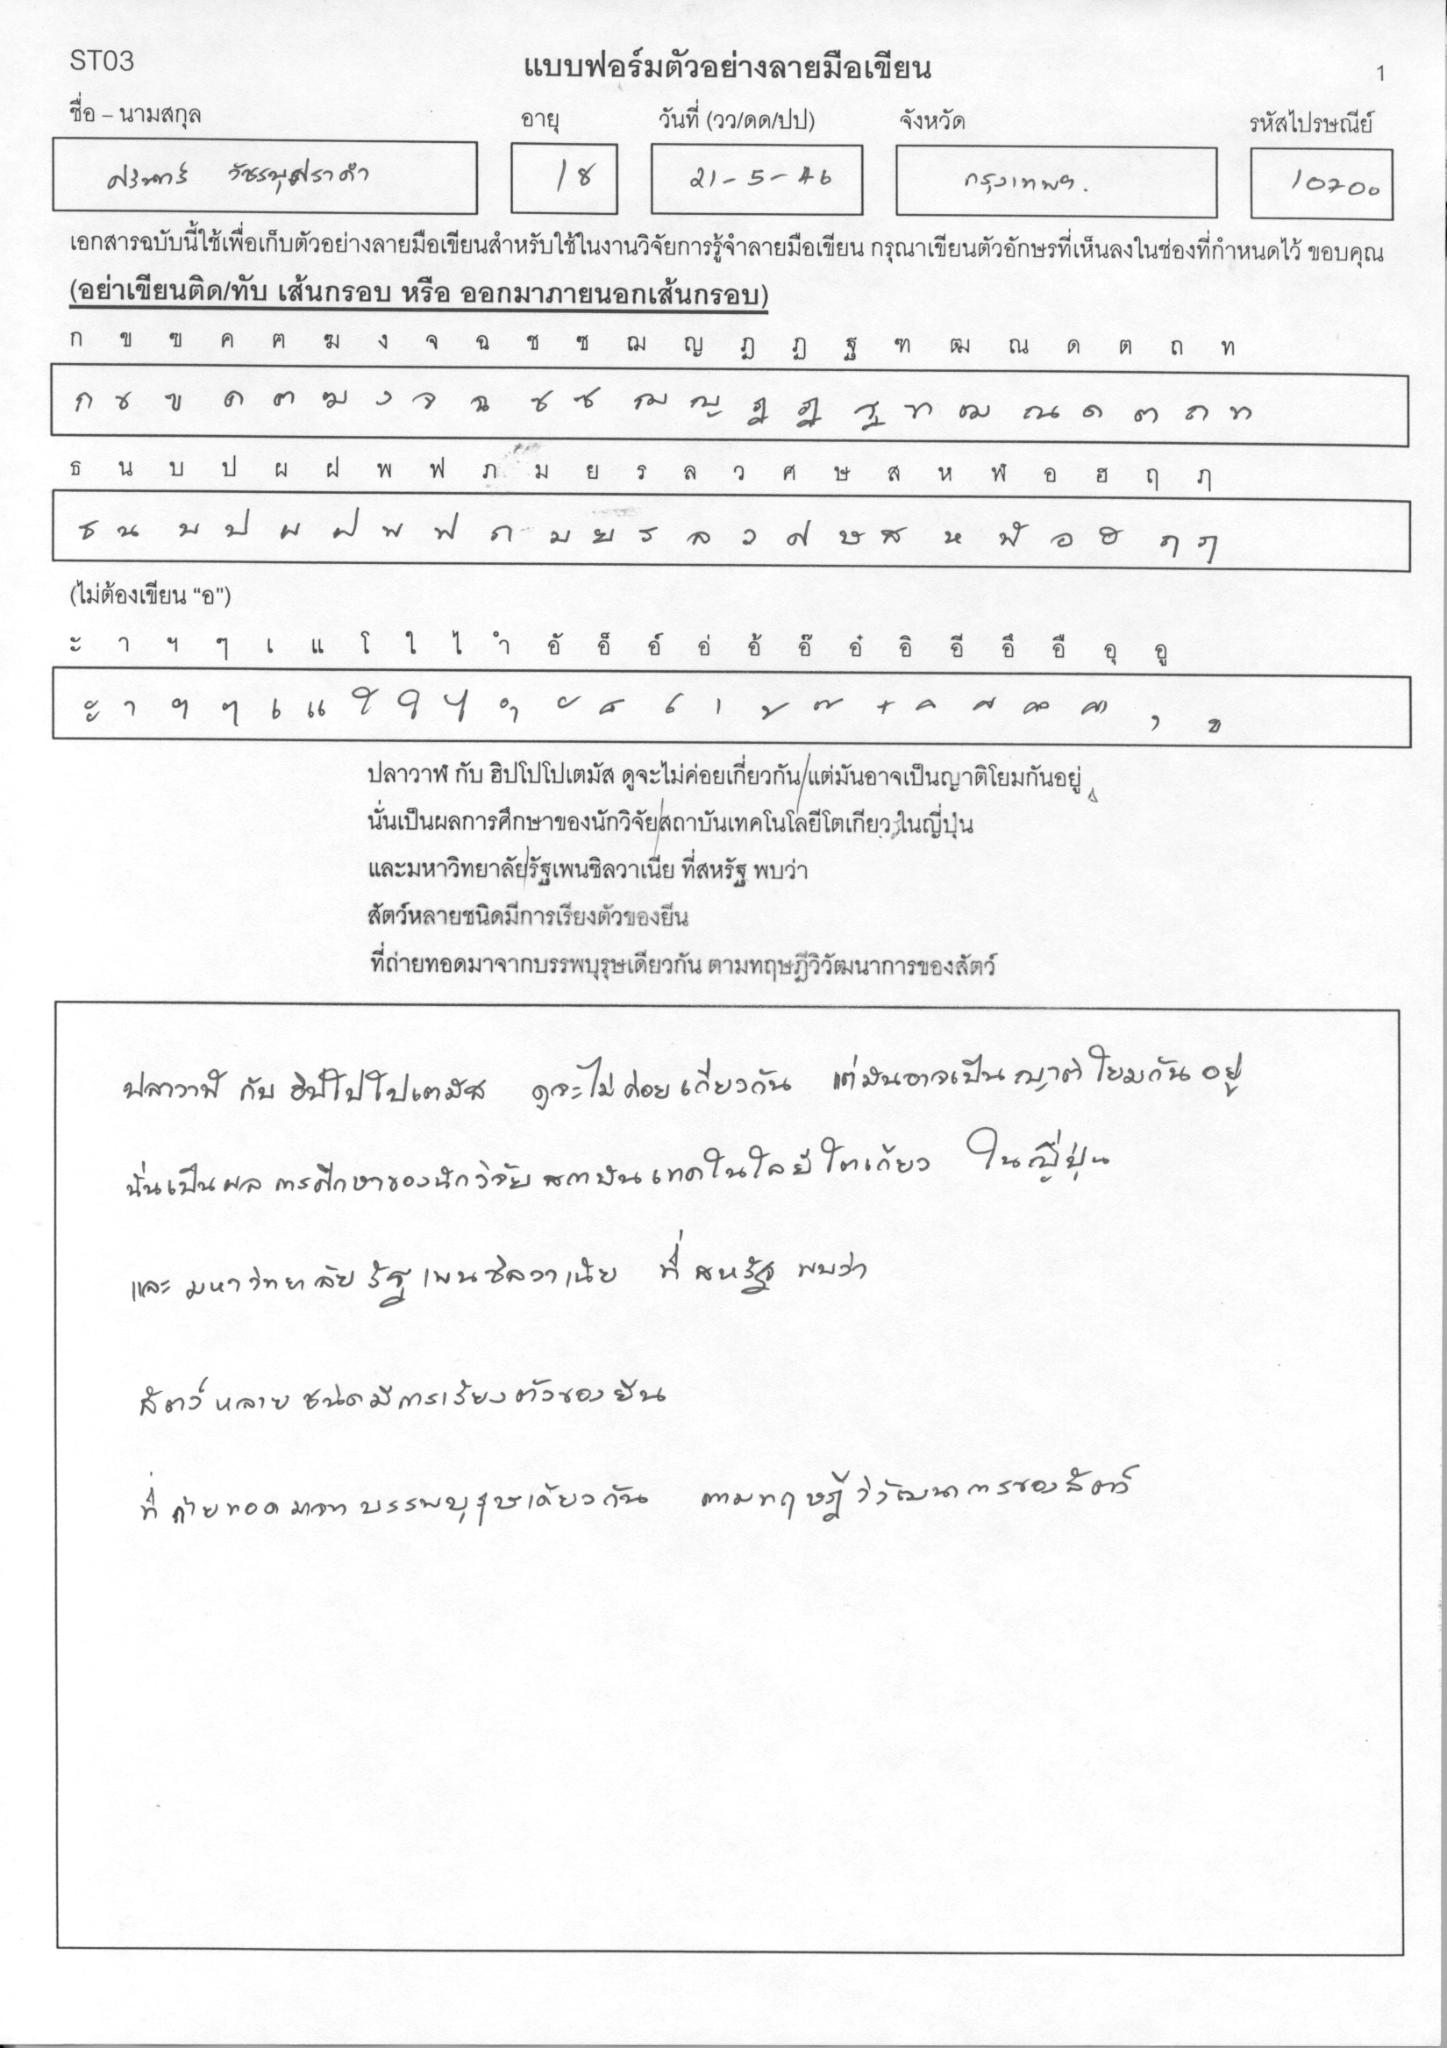 ST03
แบบฟอร์มตัวอย่างลายมือเขียน
1
ชื่อ – นามสกุล อายุ วันที่ (วว/ดด/ปป) จังหวัด รหัสไปรษณีย์
18 21-5-46 กรุงเทพฯ. 10700
เอกสารฉบับนี้ใช้เพื่อเก็บตัวอย่างลายมือเขียนสำหรับใช้ในงานวิจัยการรู้จำลายมือเขียน กรุณาเขียนตัวอักษรที่เห็นลงในช่องที่กำหนดไว้ ขอบคุณ
(อย่าเขียนติด/ทับ เส้นกรอบ หรือ ออกมาภายนอกเส้นกรอบ)
ก ข ฃ ค ฅ ฆ ง จ ฉ ช ซ ฌ ญ ฎ ฏ ฐ ฑ ฒ ณ ด ต ถ ท
ก ข ฃ ค ฅ ฆ ง จ ฉ ช ซ ฌ ญ ฎ ฏ ฐ ฑ ฒ ณ ด ต ถ ท
ธ น บ ป ผ ฝ พ ฟ ภ ม ย ร ล ว ศ ษ ส ห ฬ อ ฮ ฤ ฦ
ธ น บ ป ผ ฝ พ ฟ ภ ม ย ร ล ว ศ ษ ส ห ฬ อ ฮ ฤ ฦ
(ไม่ต้องเขียน "อ")
ะ า ฯ ๆ เ แ โ ใ ไ ำ อั อ็ อ์ อ่ อ้ อ๊ อ๋ อิ อี อึ อื อุ อู
ะ า ฯ ๆ เ แ โ ใ ไ ำ ั ็ ์ ่ ้ ๊ ๋ ิ ี ึ ื ุ ู
ปลาวาฬ กับ ฮิปโปโปเตมัส ดูจะไม่ค่อยเกี่ยวกัน/แต่มันอาจเป็นญาติโยมกันอยู่
นั่นเป็นผลการศึกษาของนักวิจัย/สถาบันเทคโนโลยีโตเกียว ในญี่ปุ่น
และมหาวิทยาลัย/รัฐเพนซิลวาเนีย ที่สหรัฐ พบว่า
สัตว์หลายชนิดมีการเรียงตัวของยีน
ที่ถ่ายทอดมาจากบรรพบุรุษเดียวกัน ตามทฤษฎีวิวัฒนาการของสัตว์
ปลาวาฬ กับ ฮิปโปโปเตมัส ดูจะไม่ค่อยเกี่ยวกัน แต่มันอาจเป็นญาติโยมกันอยู่
นั่นเป็นผลการศึกษาของนักวิจัยสถาบันเทคโนโลยีโตเกียว ในญี่ปุ่น
และมหาวิทยาลัยรัฐเพนซิลวาเนีย ที่สหรัฐ พบว่า
สัตว์หลายชนิดมีการเรียงตัวของยีน
ที่ถ่ายทอดมาจากบรรพบุรุษเดียวกัน ตามทฤษฎีวิวัฒนาการของสัตว์